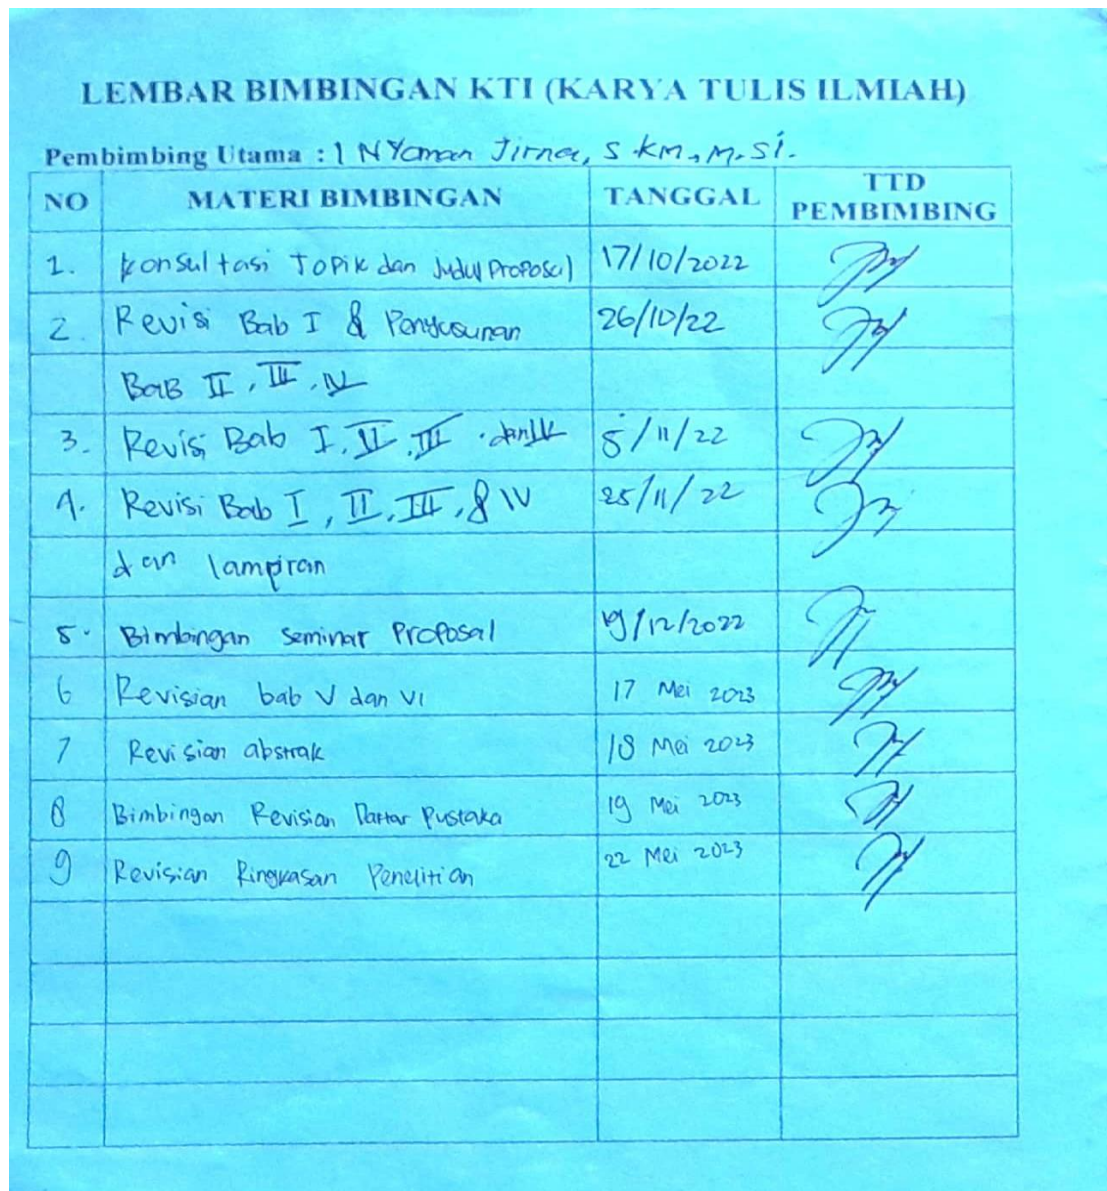 LEMBAR BIMBINGAN KTI (KARYA TULIS ILMIAH)
Pembimbing Utama : I Nyoman Jirna, S KM, M.Si.
NO MATERI BIMBINGAN TANGGAL TTD PEMBIMBING
1. Konsultasi Topik dan Judul Proposal 17/10/2022
2. Revisi Bab I & Penyusunan 26/10/22
Bab II, III, IV
3. Revisi Bab I, II, III, dan IV 5/11/22
4. Revisi Bab I, II, III, & IV 25/11/22
dan lampiran
5. Bimbingan Seminar Proposal 19/12/2022
6 Revisian bab V dan VI 17 Mei 2023
7 Revisian abstrak 18 Mei 2023
8 Bimbingan Revisian Daftar Pustaka 19 Mei 2023
9 Revisian Ringkasan Penelitian 22 Mei 2023